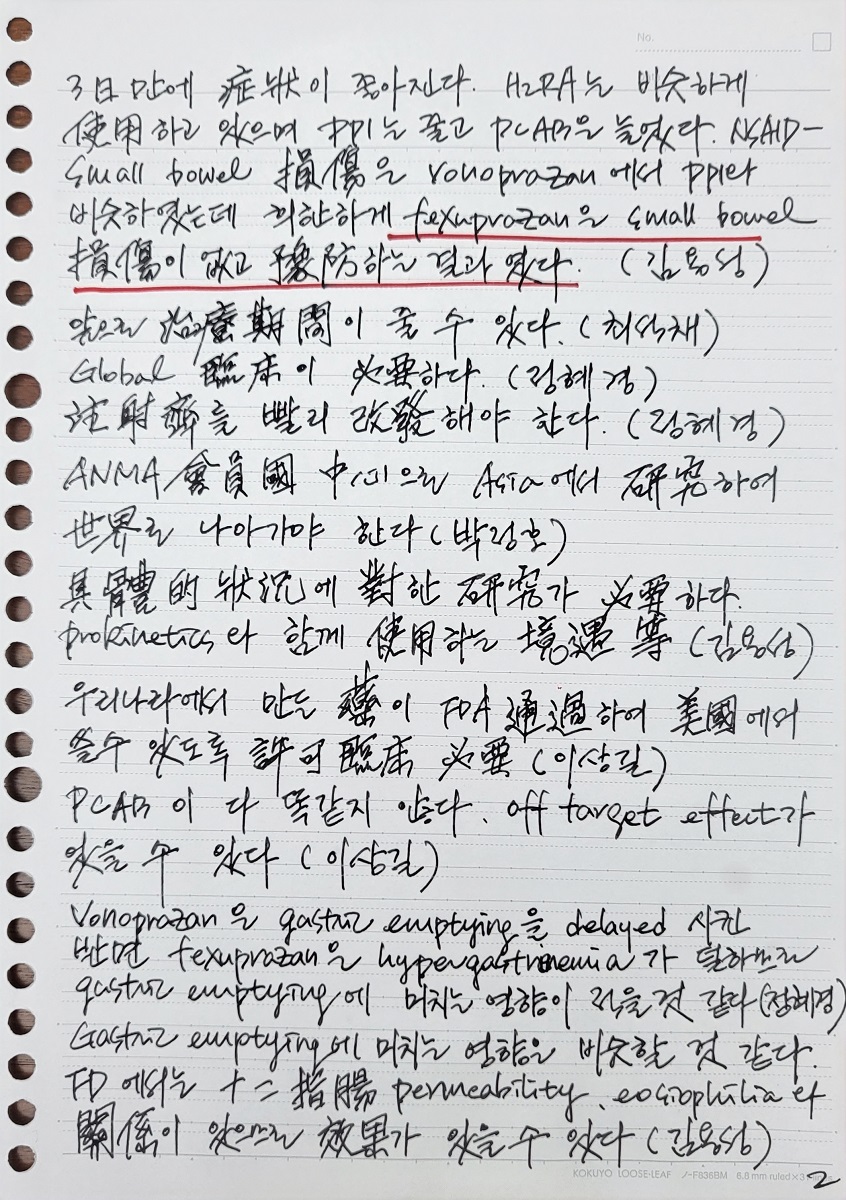 No.
3日만에 症狀이 좋아진다. H2RA는 비슷하게
使用하고 있으며 PPI는 줄고 PCAB은 늘었다. NSAID-
small bowel 損傷은 vonoprazan에서 PPI와
비슷하였는데 희한하게 fexuprazan은 small bowel
損傷이 없고 豫防하는 결과였다. (김용성)
앞으로 治療期間이 줄 수 있다. (최석채)
Global 臨床이 必要하다. (정혜경)
注射劑를 빨리 改發해야 한다. (정혜경)
ANMA 會員國 中心으로 Asia에서 硏究하여
世界로 나아가야 한다 (박정호)
具體的 狀況에 對한 硏究가 必要하다.
prokinetics와 함께 使用하는 境遇 等 (김용성)
우리나라에서 만든 藥이 FDA 通過하여 美國에서
쓸수 있도록 許可臨床 必要 (이상길)
PCAB이 다 똑같지 않다. off target effect가
있을 수 있다 (이상길)
Vonoprazan은 gastric emptying을 delayed 시킨
반면 fexuprazan은 hypergastrinemia가 덜하므로
gastric emptying에 미치는 영향이 적을것 같다 (정혜경)
Gastric emptying에 미치는 영향은 비슷할 것 같다.
FD에서는 十二指腸 permeability, eosiophilia와
關係이 있으므로 效果가 있을 수 있다 (김용성)
KOKUYO LOOSE-LEAF ノ-F836BM 6.8 mm ruled×3
2